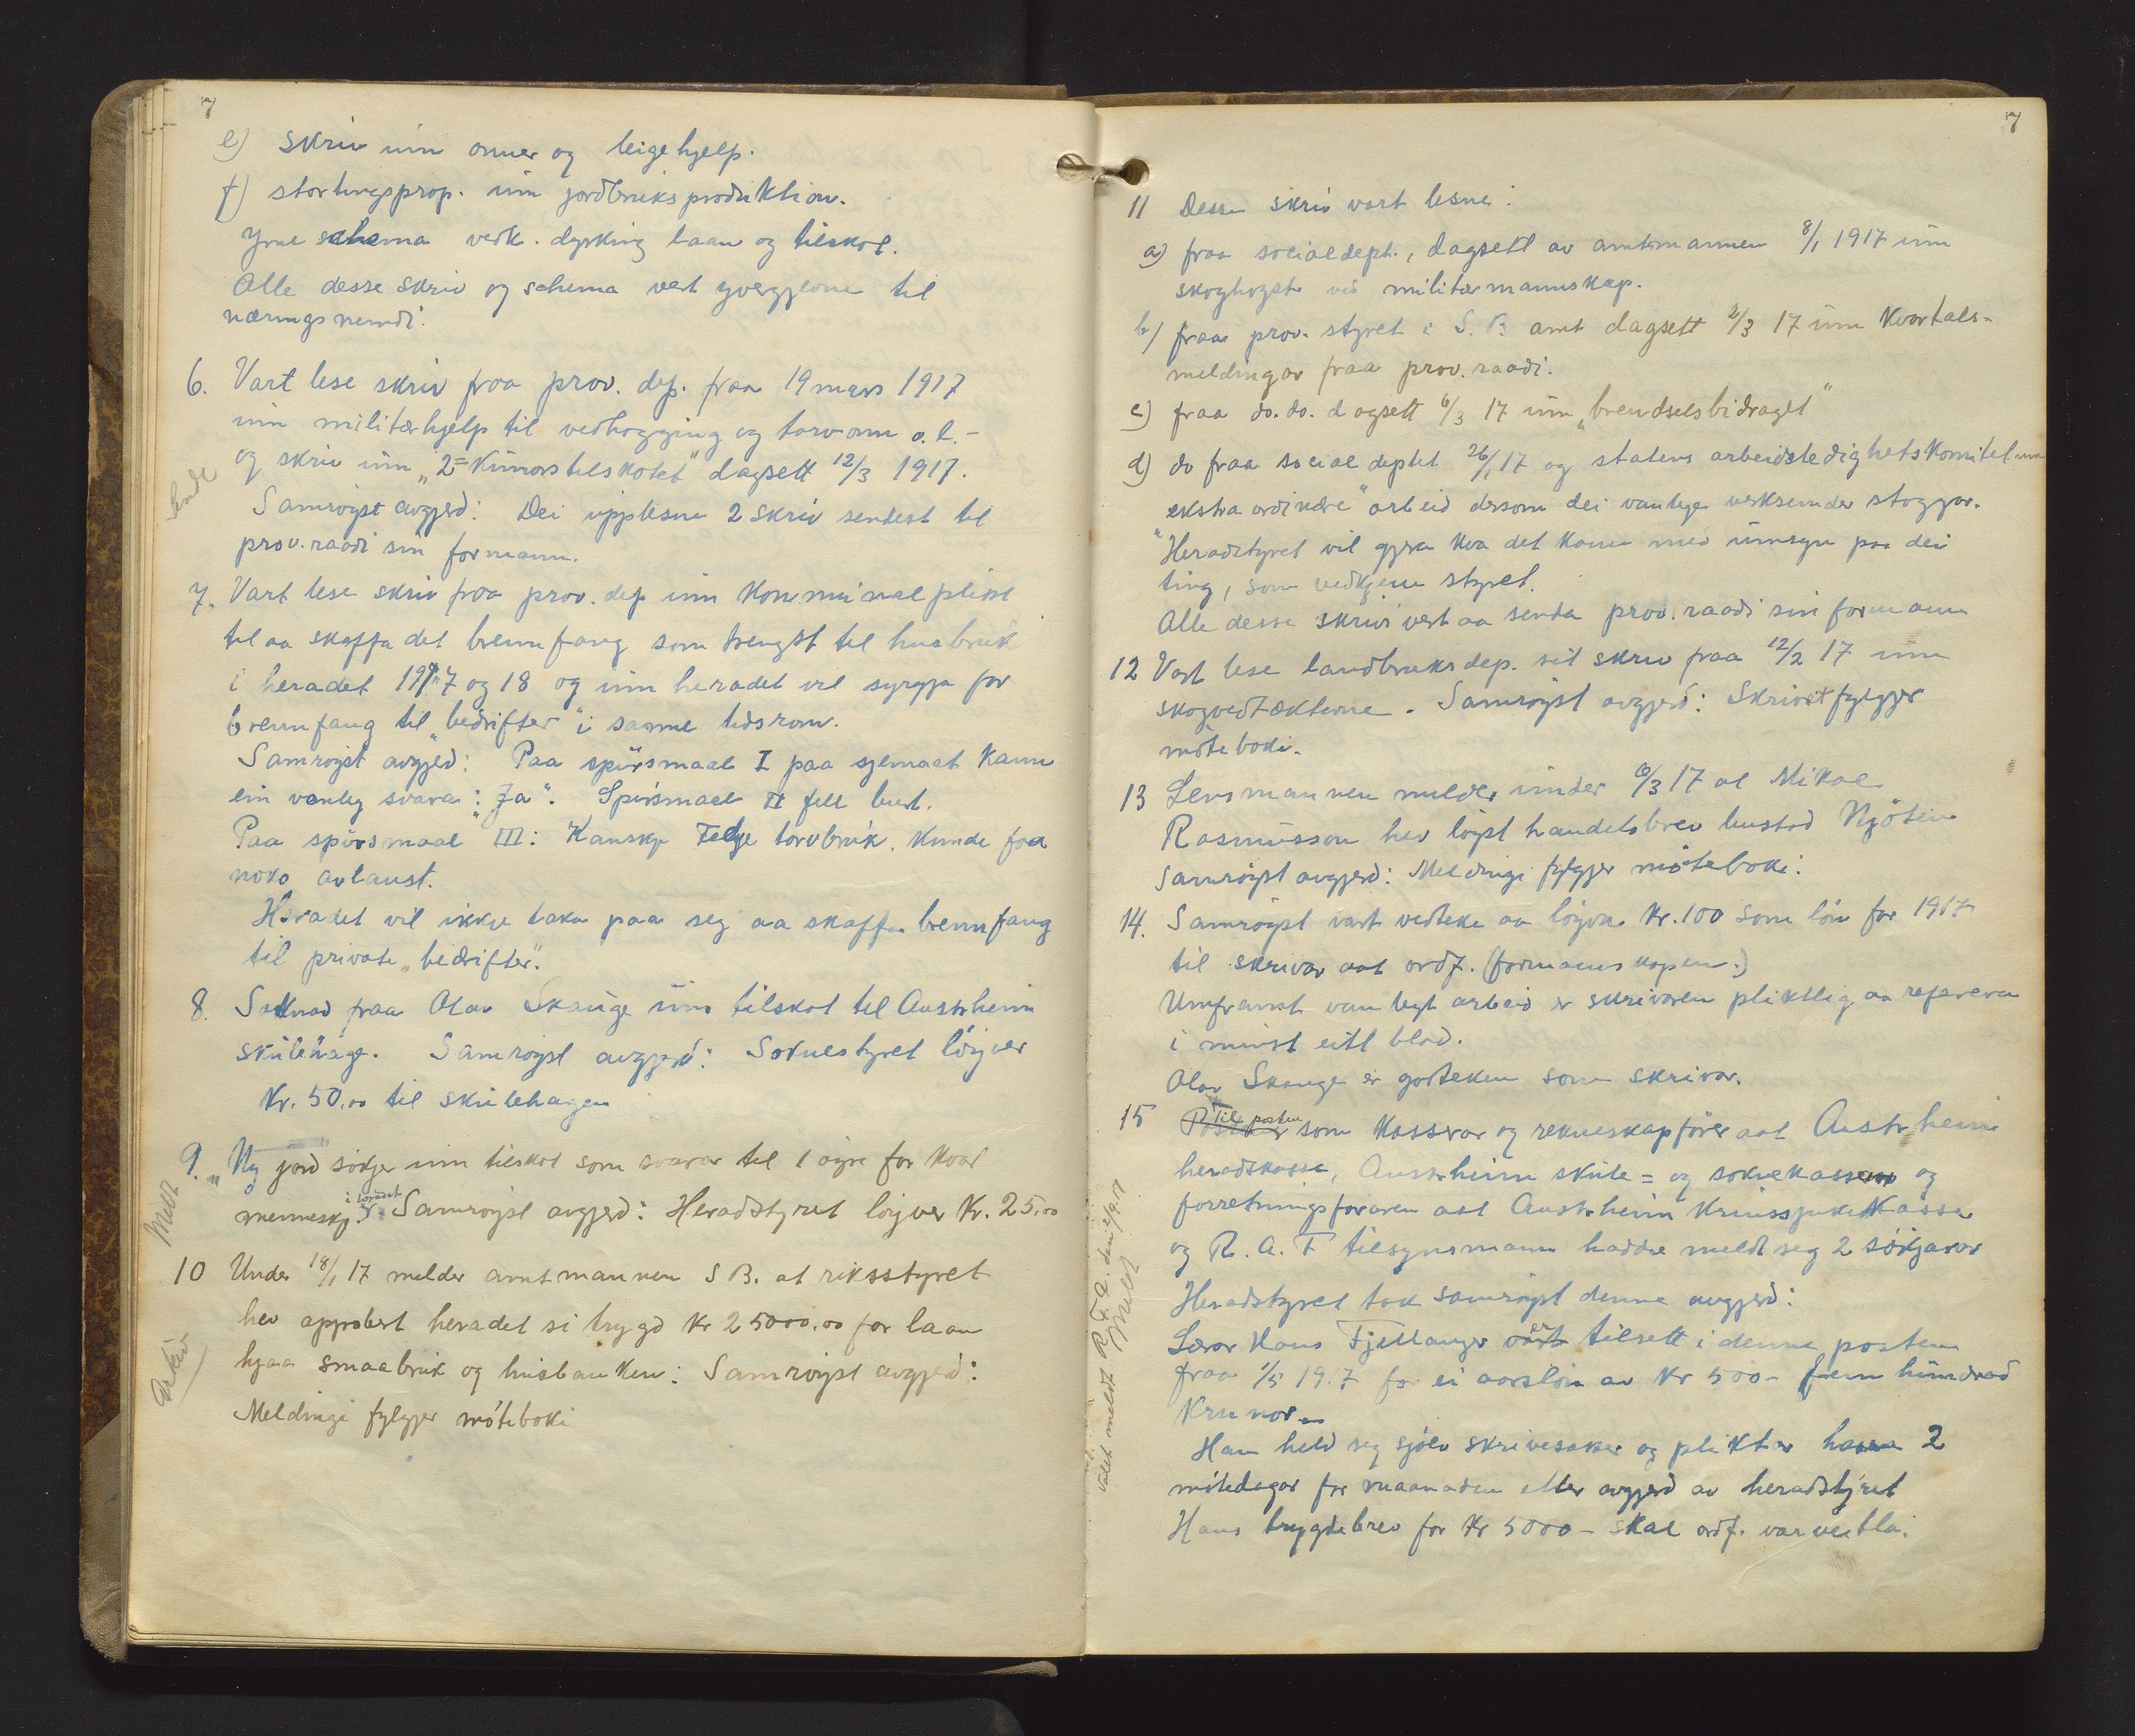 7
e) skriv um onner og leigehjelp.
f) stortingsprop. um jordbruksproduktion.
Yme schema vedk. dyrking laan og tilskot.
Alle desse skriv og schema vert yvergjevne til
næringsnemdi.
6. Vart lese skriv fraa prov. dep. fraa 19 mars 1917
um militærhjelp til vedhogging og torvonn o.l. -
og skriv um „2= kunorstilskotet" dagsett 12/3 1917.
Sendt
Samrøyst avgjerd: Dei upplesne 2 skriv sendest til
prov.raadi sin formann.
7. Vart lese skriv fraa prov. dep um kommunal plikt
til aa skaffa det brennfang som trengst til husbruk
i heradet 1917 og 18 og um heradet vil syrgja for
brennfang til „bedrifter" i samme tidsrom.
Samrøyst avgjerd: Paa spursmaal I paa sjemaet kann
ein vanleg svara: „Ja". Spursmaal II fell burt.
Paa spursmaal III: Kanskje Fedje torvbruk. kunde faa
noko avlaust.
Heradet vil ikkje taka paa seg aa skaffa brennfang
til private „bedrifter".
8. Søknad fraa Olav Skauge um tilskot til Austrheim
skulehage. Samrøyst avgjerd: Soknestyret løyver
Kr. 50.00 til skulehagen
9. „Ny jord" søkjer um tilskot som svarar til 1 øyre for kvar
Meldt
menneskje i heradet. Samrøyst avgjerd: Heradstyret løyver Kr. 25.00
10 Under 18/1 17 melder amtmannen S B. at riksstyret
hev approbert heradet si trygd Kr 25000.00 for laan
hjaa smaabruk og husbanken: Samrøyst avgjerd:
Arkiv
Meldingi fylgjer møteboki
7
11 Desse skriv vart lesne:
a) fraa socialdept., dagsett av amtmannen 8/1 1917 um
skoghogst ved militærmannskap.
b) fraa prov. styret i S. B. amt dagsett 2/3 17 um kvartals-
meldingar fraa prov. raadi.
c) fraa do. do. dagsett 6/3 17 um „brendselsbidraget"
d) do fraa social deptet 26/1 17 og statens arbeidsledighetskomite um
„ekstraordinære" arbeid dersom dei vanlege verksemder stoggar.
"Heradstyret vil gjera kva det kann med umsyn paa dei
ting, som vedkjem styret.
Alle desse skriv vert aa senda prov. raadi sin formann
12 Vart lese landbruksdep. sit skriv fraa 12/2 17 um
skogvedtæktene. Samrøyst avgjerd: Skrivet fylgjer
møteboki.
13 Lensmannen melder under 6/3 17 at Mikal
Rasmusson hev løyst handelsbrev bustad Njøten
Samrøyst avgjerd: Meldingi fylgjer møteboki.
14. Samrøyst vart vedteke aa løyva Kr. 100 som løn for 1917
til skrivar aat ordf. (formannskapen.)
Umframt vanlegt arbeid er skrivaren pliktig aa referera
i minst eitt blad.
Olav Skauge er godteken som skrivar.
15 Til posten som kasserar og rekneskapsførar aat Austrheim
heradskasse, Austrheim skule= og soknekasse og
forretningsføraren aat Austrheim Krinssjukekasse
og R. A. F tilsynsmann hadde meldt seg 2 søkjarar
Heradstyret tok samrøyst denne avgjerd:
Lærar Hans Fjellanger er tilsett i denne posten
fraa 1/5 1917 for ei aarsløn av Kr 500- fem hundrad
Krunor.
Han held seg sjølv skrivesaker og pliktar hava 2
møtedagar for maanaden etter avgjerd av heradstyret
Hans trygdebrev for Kr 5000 - skal ordf. vara
Meldt